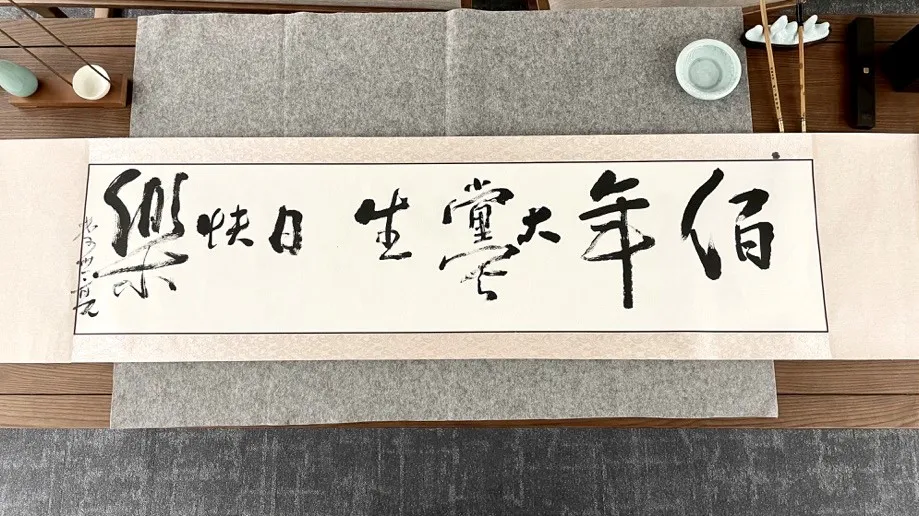 佰年大黨生日快樂